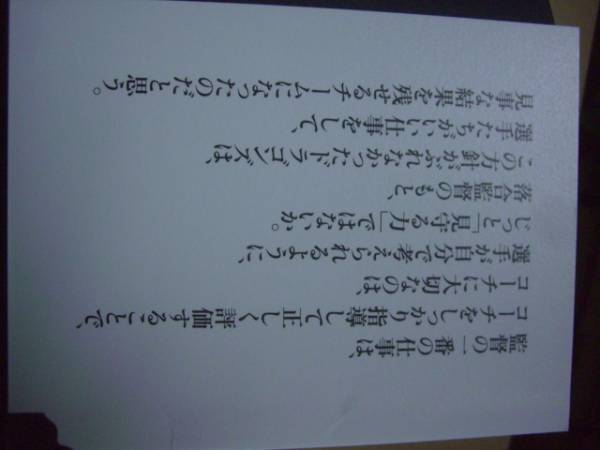 監督の一番の仕事は、
コーチをしっかり指導して正しく評価することで、
コーチに大切なのは、
選手が自分で考えられるように、
じっと「見守る力」ではないか。
落合監督のもと、
この方針がぶれなかったドラゴンズは、
選手たちがいい仕事をして、
見事な結果を残せるチームになったのだと思う。